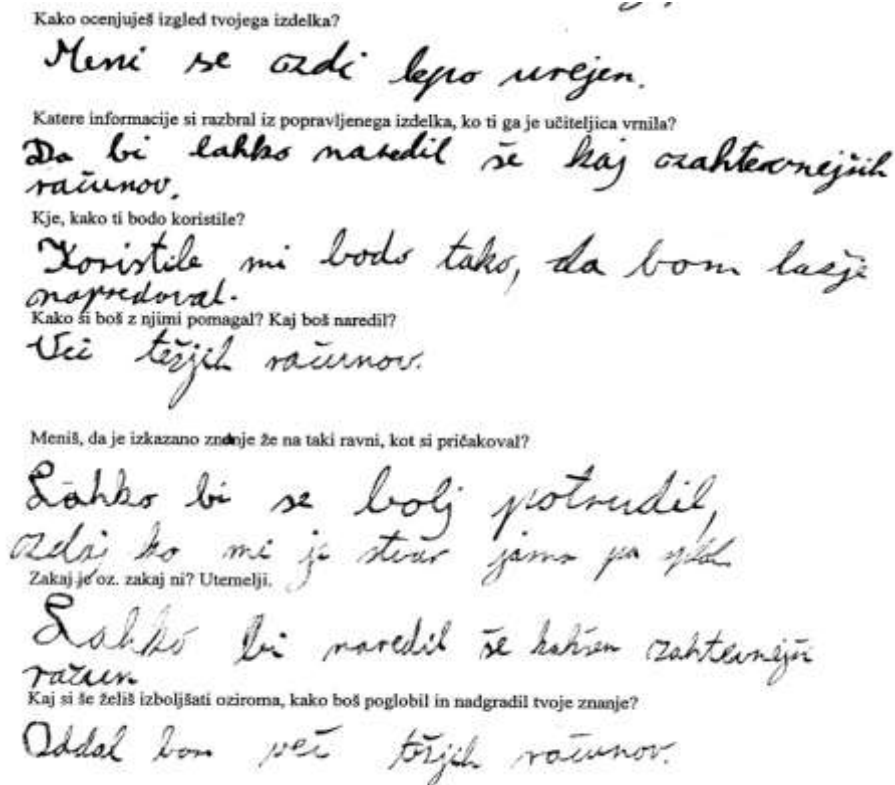 Kako ocenjuješ izgled tvojega izdelka?
Meni se zdi lepo urejen.
Katere informacije si razbral iz popravljenega izdelka, ko ti ga je učiteljica vrnila?
Da bi lahko naredil še kaj zahtevnejših
računov.
Kje, kako ti bodo koristile?
Koristile mi bodo tako, da bom lažje
napredoval.
Kako si boš z njimi pomagal? Kaj boš naredil?
Več težjih računov.
Meniš, da je izkazano znanje že na taki ravni, kot si pričakoval?
Lahko bi se bolj potrudil,
zdaj ko mi je stvar jasna pa sploh
Zakaj je oz. zakaj ni? Utemelji.
Lahko bi naredil še kakšen zahtevnejši
račun
Kaj si še želiš izboljšati oziroma, kako boš poglobil in nadgradil tvoje znanje?
Oddal bom več težjih računov.